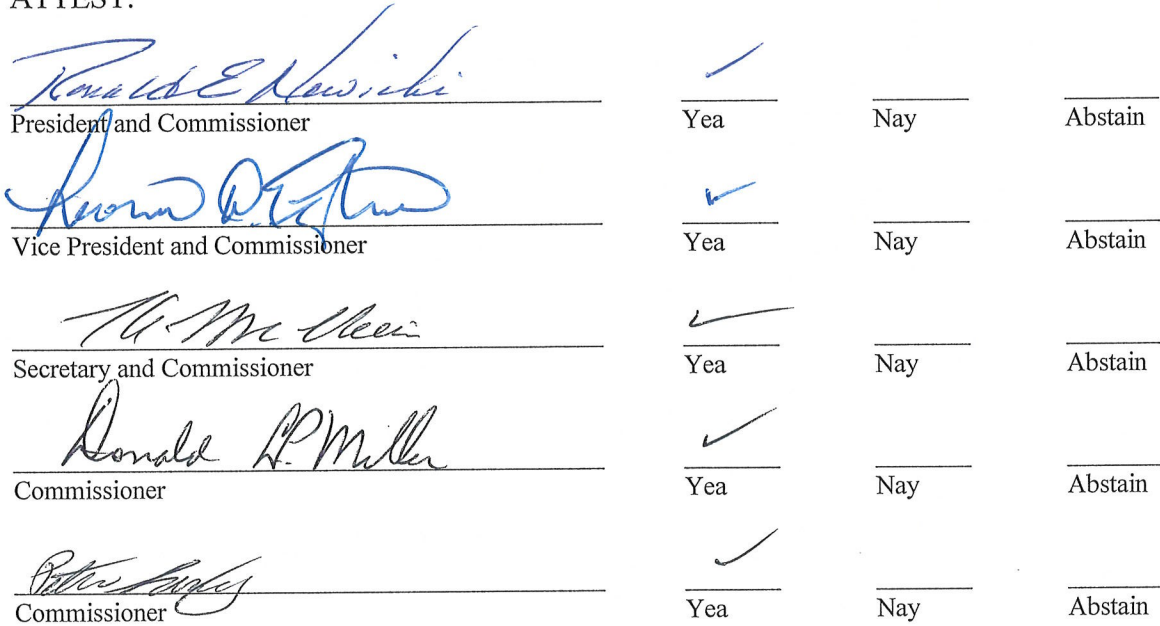 ATTEST:
Ronald E Nowicki
President and Commissioner Yea Nay Abstain
Vice President and Commissioner Yea Nay Abstain
Secretary and Commissioner Yea Nay Abstain
Donald P. Miller
Commissioner Yea Nay Abstain
Commissioner Yea Nay Abstain